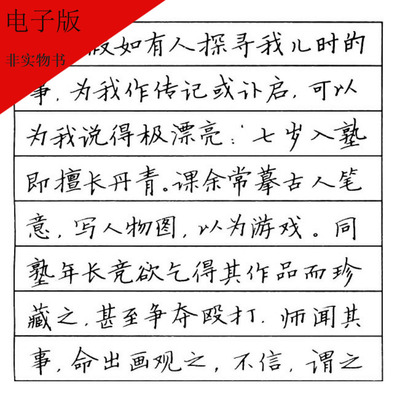 电子版
非实物书
假如有人探寻我儿时的
事,为我作传记或讣启,可以
为我说得极漂亮:七岁入塾
即擅长丹青。课余常摹古人笔
意,写人物图,以为游戏。同
塾年长竞欲乞得其作品而珍
藏之,甚至争夺殴打.师闻其
事,命出画观之,不信,谓之